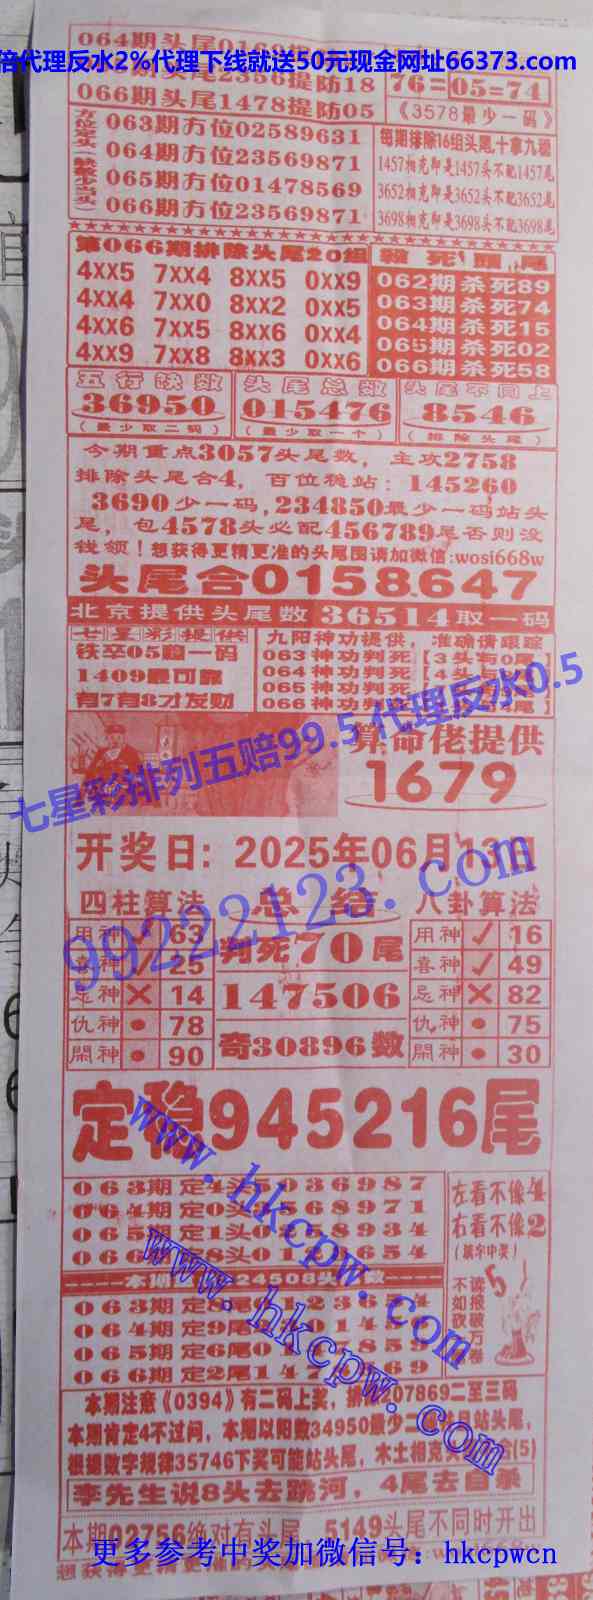 倍代理反水2%代理下线就送50元现金网址66373.com
064期头尾0169提防
066期头尾1478提防05
提防18
76=05=74
《3578最少一码》
063期方位02589631
064期方位23569871
065期方位01478569
066期方位23569871
每期排除16组头尾,十拿九稳
1457相克即是1457头不配1457尾
3652相克即是3652头不配3652尾
3698相克即是3698头不配3698尾
第066期排除头尾20组
4XX5 7XX4 8XX5 0XX9
4XX4 7XX0 8XX2 0XX5
4XX6 7XX5 8XX6 0XX4
4XX9 7XX8 8XX3 0XX6
062期杀死89
063期杀死74
064期杀死15
065期杀死02
066期杀死58
五行缺数
36950
(最少取二码)
头尾总数
015476
(最少取一个)
头尾不同上
8546
(排除头尾)
今期重点3057头尾数,主攻2758
排除头尾合4,百位稳站:145260
3690少一码,234850最少一码站头
尾,包4578头必配456789尾否则没
钱领!想获得更精更准的头尾图请加微信:wosi668w
头尾合0158.647
北京提供头尾数36514取一码
七星彩提供
铁卒05稳一码
1409最可靠
有7有8才发财
九阳神功提供,准确请跟踪
063神功判死【3头与0尾】
064神功判死【4头
065神功判死
066神功判死
七星彩排列五赔99.5代理反水0.5
算命佬提供
1679
开奖日:2025年06月13日
99222123.com
四柱算法
用神 ✓ 63
喜神 ✓ 25
忌神 × 14
仇神 ● 78
閑神 ● 90
总结
判死70尾
147506
奇30896数
八卦算法
用神 ✓ 16
喜神 ✓ 49
忌神 × 82
仇神 ● 75
閑神 ● 30
定稳945216尾
www.hkcpw.com
063期定4头
036987
064期定0头
568971
065期定1头
58934
066
8头
654
左看不像4
右看不像2
(填字中奖)
www.hkcpw.com
063期定8尾
123654
064期定9尾
065期定6尾
7859
066期定2尾147
69
5
不读
如报
砍破
柴万
卷
本期注意《0394》有二码上奖,排
07869二至三码
本期肯定4不过问,本期以阳数34950最少二
站头尾,
根据数字规律35746下奖可能站头尾,木土相克
合(5)
李先生说8头去跳河,4尾去自杀
本期02756绝对有头尾,5149头尾不同时开出
更多参考中奖加微信号:hkcpwcn